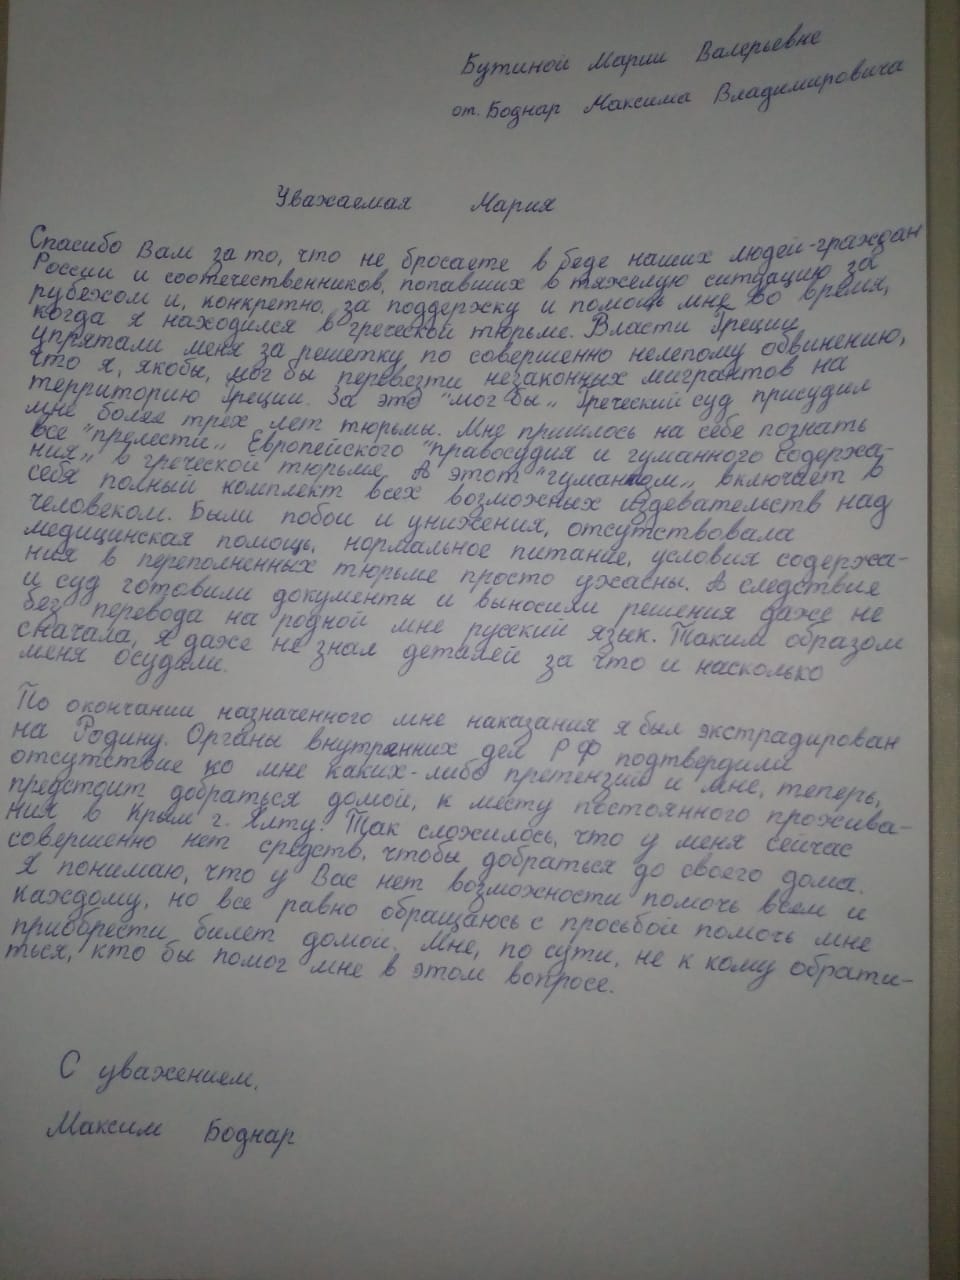 Бутиной Марии Валерьевне
от. Боднар Максима Владимировича
Уважаемая Мария
Спасибо Вам за то, что не бросаете в беде наших людей-граждан
России и соотечественников, попавших в тяжелую ситуацию за
рубежом и, конкретно, за поддержку и помощь мне во время,
когда я находился в греческой тюрьме. Власти Греции
упрятали меня за решетку по совершенно нелепому обвинению,
что я, якобы, мог бы перевезти незаконных мигрантов на
территорию Греции. За это "мог бы" Греческий суд присудил
мне более трех лет тюрьмы. Мне пришлось на себе познать
все "прелести" Европейского "правосудия и гуманного содержа-
ния" в греческой тюрьме. А этот "гуманизм" включает в
себя полный комплект всех возможных издевательств над
человеком. Были побои и унижения, отсутствовала
медицинская помощь, нормальное питание, условия содержа-
ния в переполненных тюрьме просто ужасны. А следствие
и суд готовили документы и выносили решения даже не
без перевода на родной мне русский язык. Таким образом
сначала, я даже не знал деталей за что и насколько
меня осудили.
По окончании назначенного мне наказания я был экстрадирован
на Родину. Органы внутренних дел РФ подтвердили
отсутствие ко мне каких-либо претензий и мне, теперь,
предстоит добраться домой, к месту постоянного прожива-
ния в Крым г. Ялту. Так сложилось, что у меня сейчас
совершенно нет средств, чтобы добраться до своего дома.
Я понимаю, что у Вас нет возможности помочь всем и
каждому, но все равно обращаюсь с просьбой помочь мне
приобрести билет домой. Мне, по сути, не к кому обрати-
ться, кто бы помог мне в этом вопросе.
С уважением,
Максим Боднар